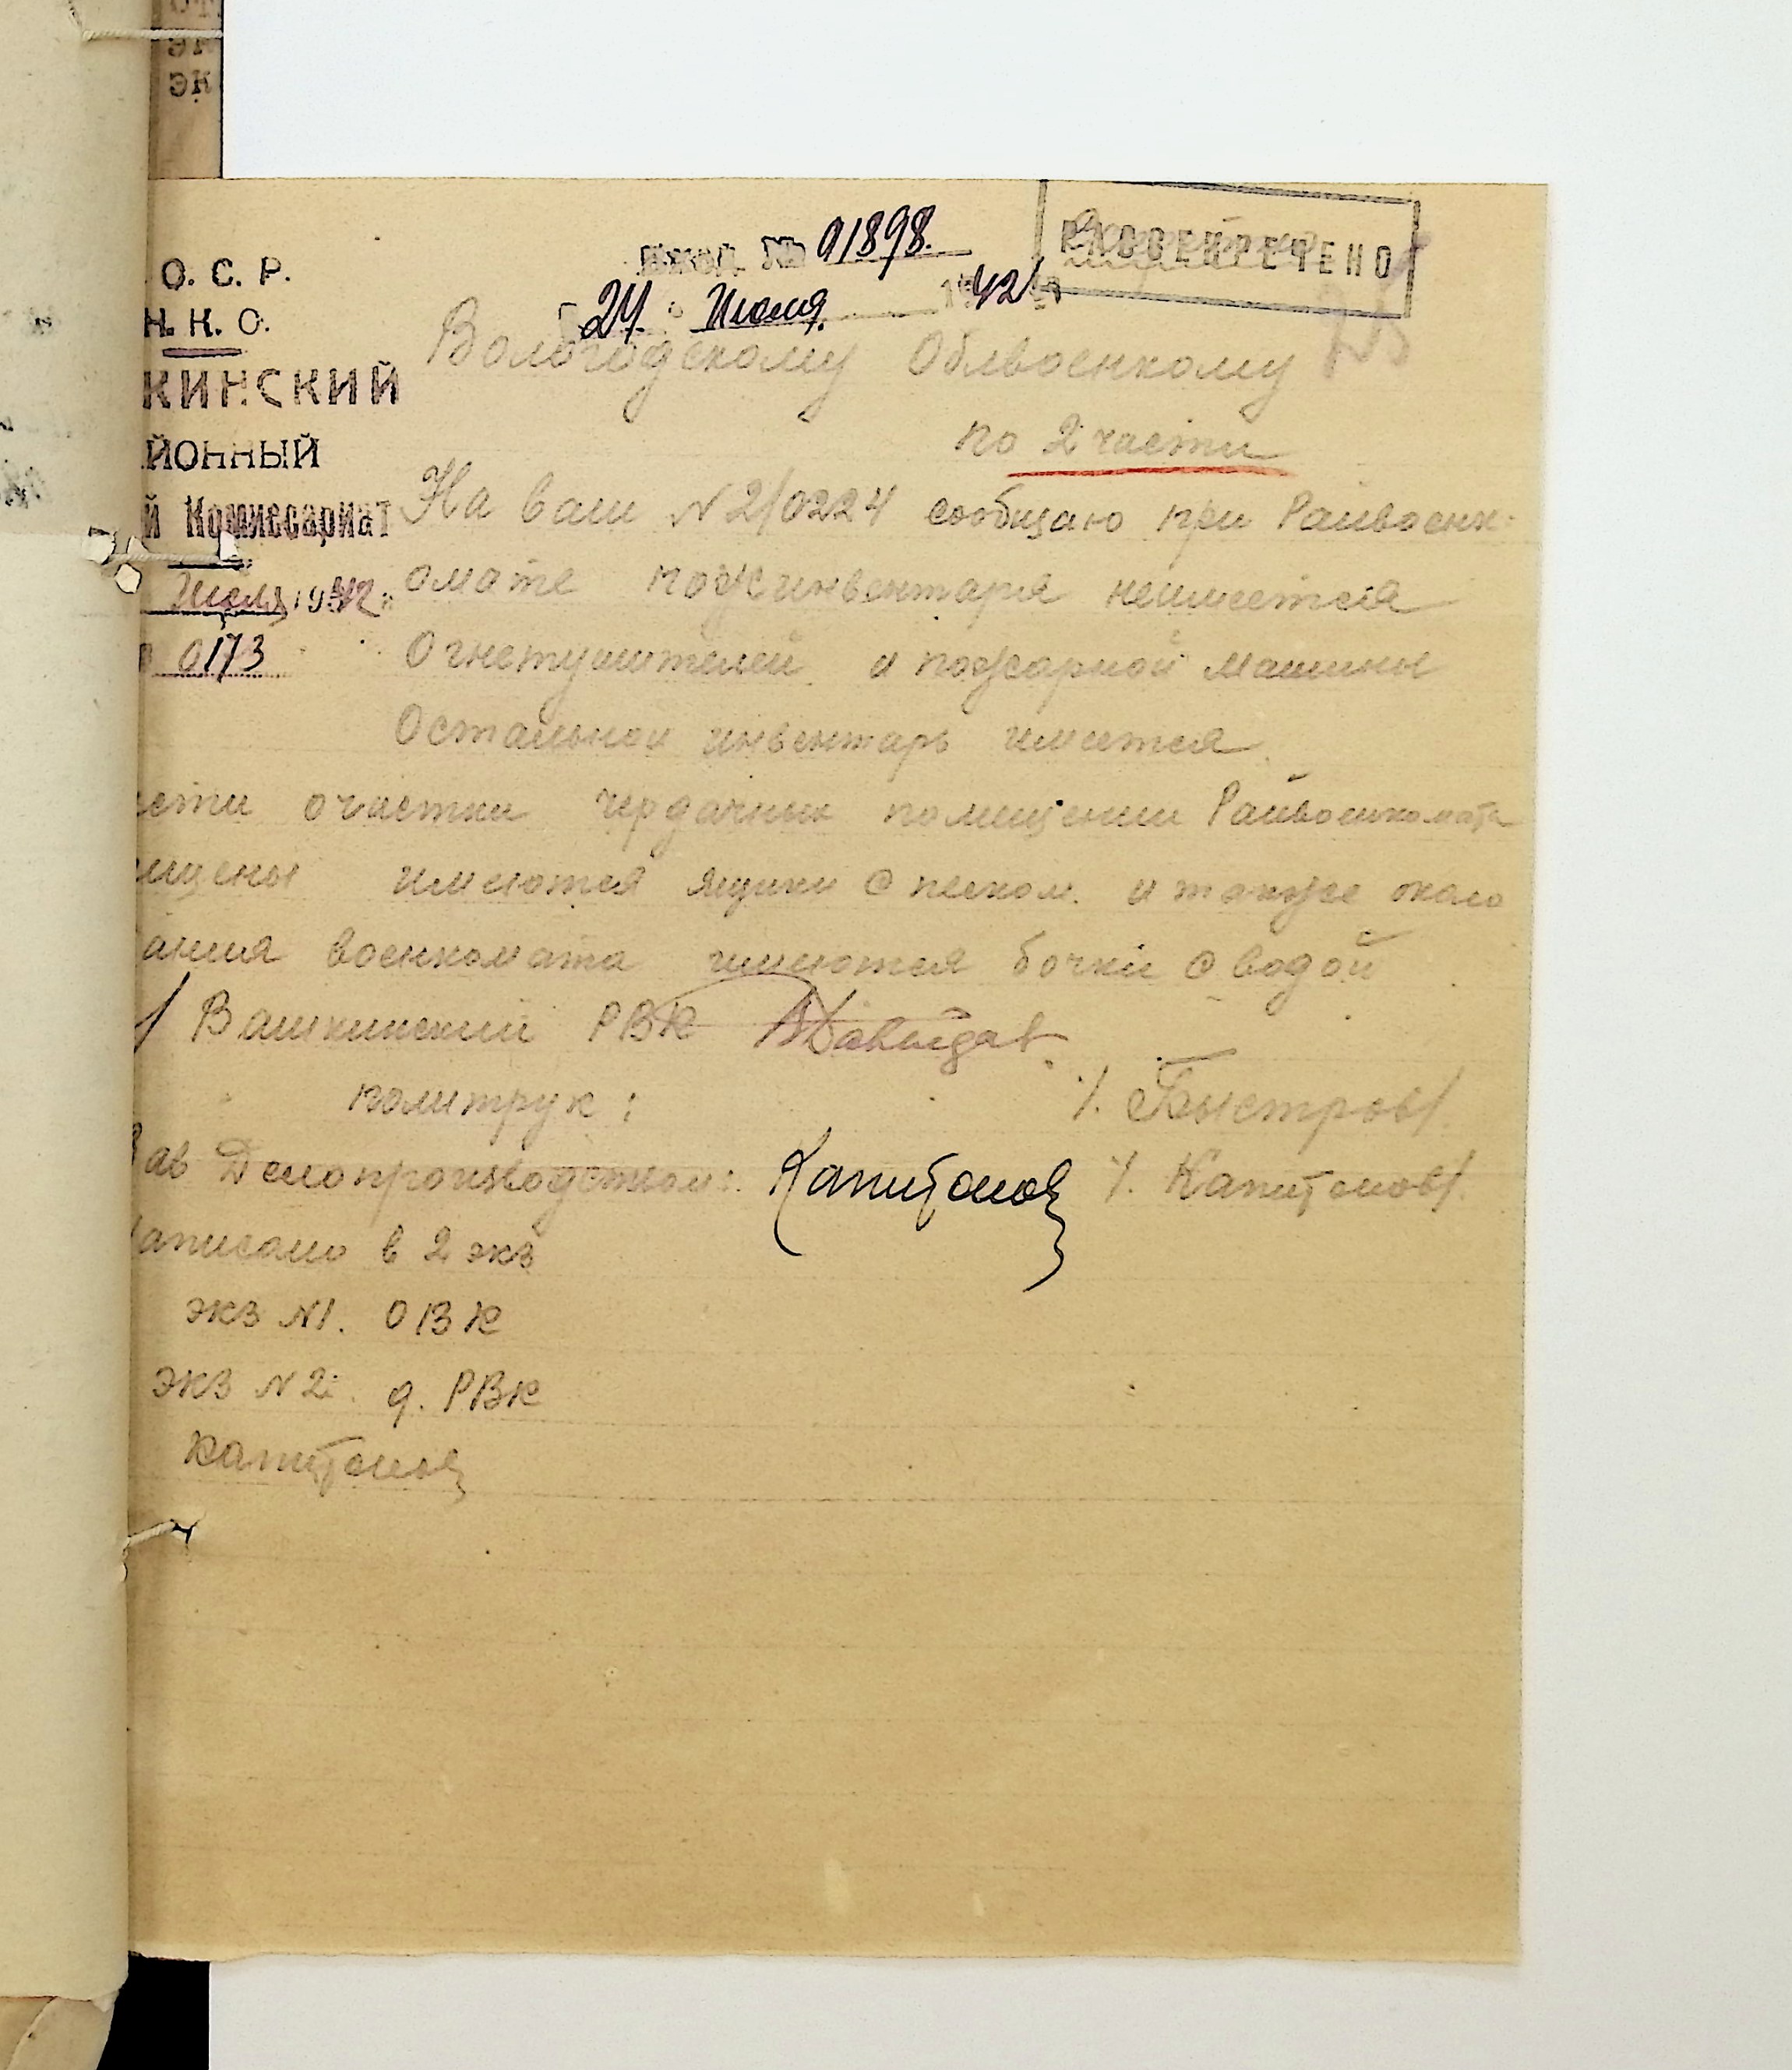 Вход № 01898.
24 Июля 1942
РАССЕКРЕЧЕНО
О. С. Р.
Н. К. О.
КИНСКИЙ
ЙОННЫЙ
й Комиссариат
Июля 1942 г
0173
Вологодскому Облвоенкому
по 2 части
На ваш №2/0224 сообщаю при Райвоенк-
омате пожинвентаря неимеется
Огнетушителей и пожарной машины
Остальной инвентарь имеется
сти очистки чердачных помещении Райвоенкомата
ищены имеются ящики с песком. и также около
ания военкомата имеются бочки с водой
Вашкинский РВК
политрук: /. Быстров/.
Зав Делопроизводством: Капитонов /. Капитонов/.
написано в 2 экз
экз №1. ОВК
экз №2. д. РВК
Капитонов